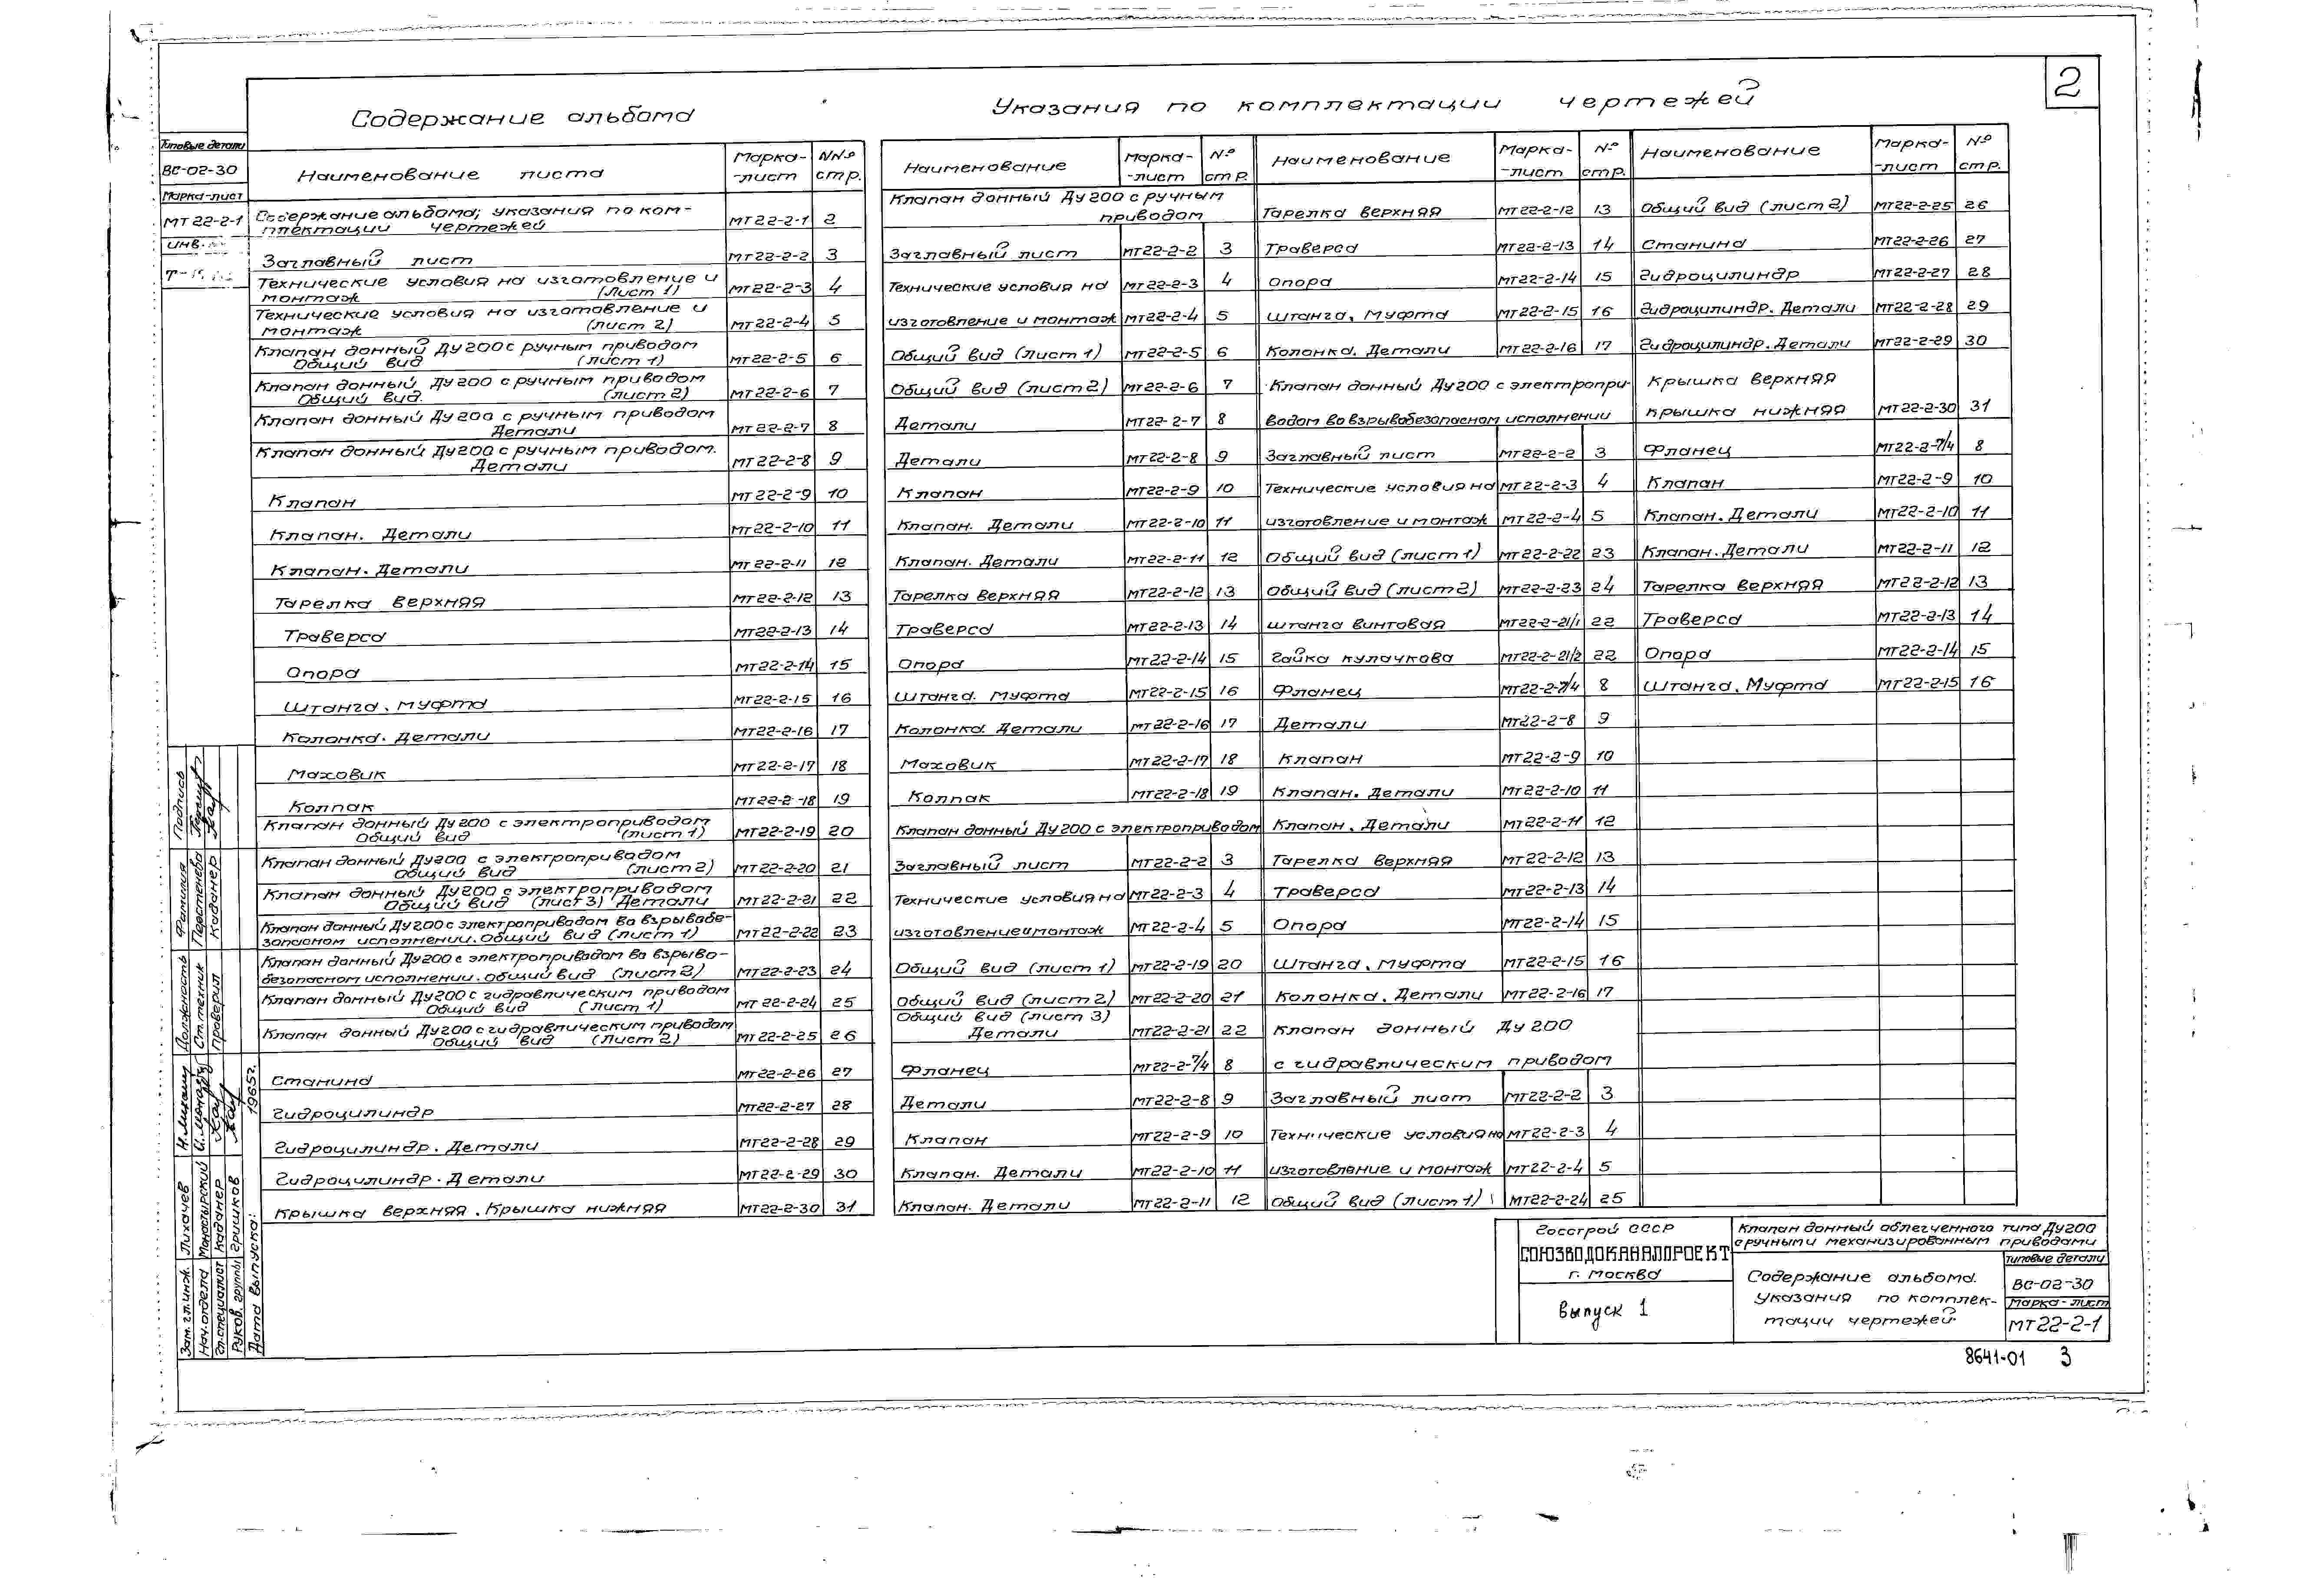 2
Содержание альбома
Указания по комплектации чертежей
Типовые детали
ВС-02-30
Марка-лист
МТ22-2-1
инв.
Наименование листа Марка-лист NN° стр.
Содержание альбома; указания по ком-
плектации чертежей МТ22-2-1 2
Заглавный лист МТ22-2-2 3
Технические условия на изготовление и
монтаж (лист 1) МТ22-2-3 4
Технические условия на изготовление и
монтаж (лист 2) МТ22-2-4 5
Клапан донный Ду200 с ручным приводом
Общий вид (лист 1) МТ22-2-5 6
Клапан донный Ду200 с ручным приводом
Общий вид. (лист 2) МТ22-2-6 7
Клапан донный Ду200 с ручным приводом
Детали МТ22-2-7 8
Клапан донный Ду200 с ручным приводом.
Детали МТ22-2-8 9
Клапан МТ22-2-9 10
Клапан. Детали МТ22-2-10 11
Клапан. Детали МТ22-2-11 12
Тарелка верхняя МТ22-2-12 13
Траверса МТ22-2-13 14
Опора МТ22-2-14 15
Штанга, муфта МТ22-2-15 16
Колонка. Детали МТ22-2-16 17
Маховик МТ22-2-17 18
Колпак МТ22-2-18 19
Клапан донный Ду200 с электроприводом
Общий вид (лист 1) МТ22-2-19 20
Клапан донный Ду200 с электроприводом
Общий вид (лист 2) МТ22-2-20 21
Клапан донный Ду200 с электроприводом
Общий вид (лист 3) Детали МТ22-2-21 22
Клапан донный Ду200 с электроприводом во взрывобе-
зопасном исполнении. Общий вид (лист 1) МТ22-2-22 23
Клапан донный Ду200 с электроприводом во взрыво-
безопасном исполнении. Общий вид (лист 2) МТ22-2-23 24
Клапан донный Ду200 с гидравлическим приводом
Общий вид (лист 1) МТ22-2-24 25
Клапан донный Ду200 с гидравлическим приводом
Общий вид (лист 2) МТ22-2-25 26
Станина МТ22-2-26 27
Гидроцилиндр МТ22-2-27 28
Гидроцилиндр. Детали МТ22-2-28 29
Гидроцилиндр. Детали МТ22-2-29 30
Крышка верхняя. Крышка нижняя МТ22-2-30 31
Наименование Марка-лист N° стр.
Клапан донный Ду200 с ручным
приводом
Заглавный лист МТ22-2-2 3
Технические условия на МТ22-2-3 4
изготовление и монтаж МТ22-2-4 5
Общий вид (лист 1) МТ22-2-5 6
Общий вид (лист 2) МТ22-2-6 7
Детали МТ22-2-7 8
Детали МТ22-2-8 9
Клапан МТ22-2-9 10
Клапан. Детали МТ22-2-10 11
Клапан. Детали МТ22-2-11 12
Тарелка верхняя МТ22-2-12 13
Траверса МТ22-2-13 14
Опора МТ22-2-14 15
Штанга. Муфта МТ22-2-15 16
Колонка. Детали МТ22-2-16 17
Маховик МТ22-2-17 18
Колпак МТ22-2-18 19
Клапан донный Ду200 с электроприводом
Заглавный лист МТ22-2-2 3
Технические условия на МТ22-2-3 4
изготовление и монтаж МТ22-2-4 5
Общий вид (лист 1) МТ22-2-19 20
Общий вид (лист 2) МТ22-2-20 21
Общий вид (лист 3)
Детали МТ22-2-21 22
Фланец МТ22-2-7/4 8
Детали МТ22-2-8 9
Клапан МТ22-2-9 10
Клапан. Детали МТ22-2-10 11
Клапан. Детали МТ22-2-11 12
Наименование Марка-лист N° стр.
Тарелка верхняя МТ22-2-12 13
Траверса МТ22-2-13 14
Опора МТ22-2-14 15
Штанга, Муфта МТ22-2-15 16
Колонка. Детали МТ22-2-16 17
Клапан донный Ду200 с электропри-
водом во взрывобезопасном исполнении
Заглавный лист МТ22-2-2 3
Технические условия на МТ22-2-3 4
изготовление и монтаж МТ22-2-4 5
Общий вид (лист 1) МТ22-2-22 23
Общий вид (лист 2) МТ22-2-23 24
Штанга винтовая МТ22-2-21/1 22
Гайка кулачкова МТ22-2-21/2 22
Фланец МТ22-2-7/4 8
Детали МТ22-2-8 9
Клапан МТ22-2-9 10
Клапан. Детали МТ22-2-10 11
Клапан. Детали МТ22-2-11 12
Тарелка верхняя МТ22-2-12 13
Траверса МТ22-2-13 14
Опора МТ22-2-14 15
Штанга, Муфта МТ22-2-15 16
Колонка. Детали МТ22-2-16 17
Клапан донный Ду200
с гидравлическим приводом
Заглавный лист МТ22-2-2 3
Технические условия на МТ22-2-3 4
изготовление и монтаж МТ22-2-4 5
Общий вид (лист 1) МТ22-2-24 25
Наименование Марка-лист N° стр.
Общий вид (лист 2) МТ22-2-25 26
Станина МТ22-2-26 27
Гидроцилиндр МТ22-2-27 28
Гидроцилиндр. Детали МТ22-2-28 29
Гидроцилиндр. Детали МТ22-2-29 30
Крышка верхняя
Крышка нижняя МТ22-2-30 31
Фланец МТ22-2-7/4 8
Клапан МТ22-2-9 10
Клапан. Детали МТ22-2-10 11
Клапан. Детали МТ22-2-11 12
Тарелка верхняя МТ22-2-12 13
Траверса МТ22-2-13 14
Опора МТ22-2-14 15
Штанга, Муфта МТ22-2-15 16
Должность Фамилия Подпись
Ст. техник Перепенева
Проверил Каданер
Зам. гл. инж. Лихачев
Нач. отдела Монастырский
Гл. специалист Каданер
Руков. группы Гришков
Дата выпуска: 1965г.
Госстрой СССР
СОЮЗВОДОКАНАЛПРОЕКТ
г. Москва
Выпуск 1
Клапан донный облегченного типа Ду200
с ручным и механизированным приводами
Содержание альбома.
Указания по комплек-
тации чертежей
Типовые детали
ВС-02-30
Марка-лист
МТ22-2-1
8641-01 3